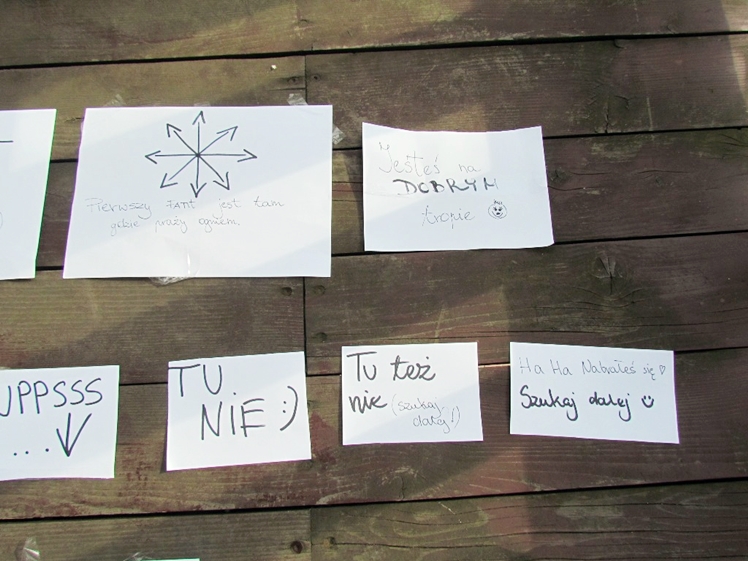 Pierwszy FANT jest tam
gdzie praży ogniem.
Jesteś na
DOBRYM
tropie
UPPSSS
....
TU
NIE :)
Tu też
nie (szukaj
dalej!)
Ha Ha Nabrałeś się ♡
Szukaj dalej ☺